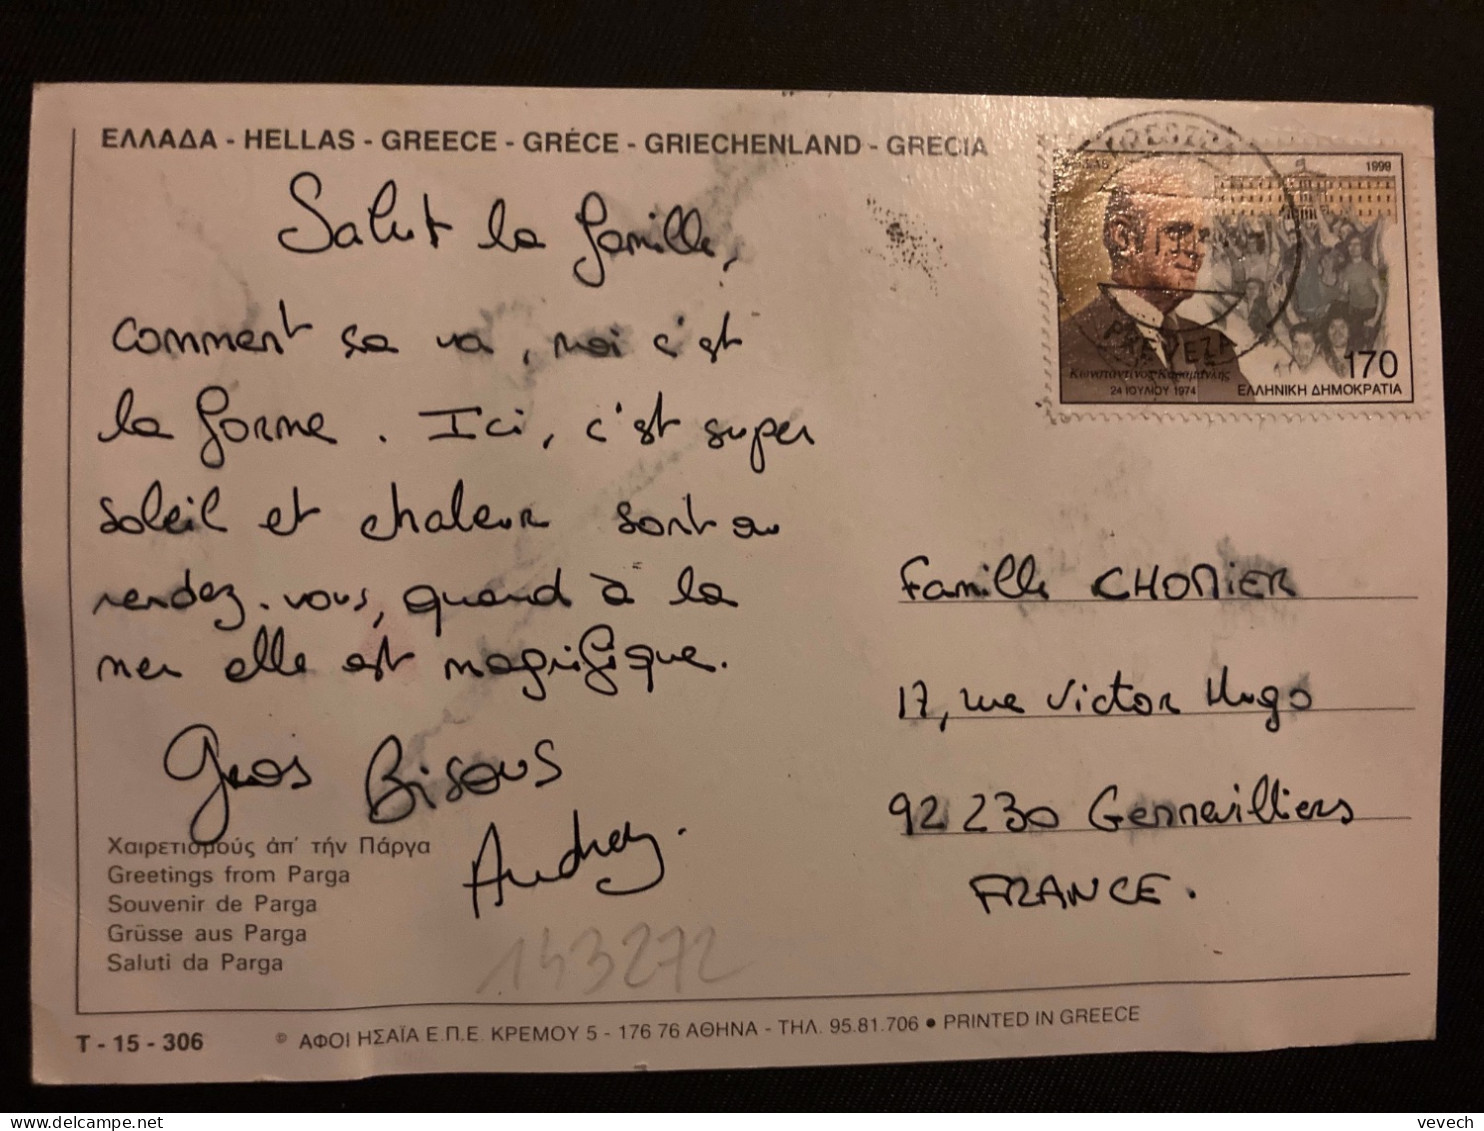 ΕΛΛΑΔΑ - HELLAS - GREECE - GRÉCE - GRIECHENLAND - GRECIA
Salut la famille,
comment sa va, moi c'est
la forme. Ici, c'est super
soleil et chaleur sont au
rendez-vous, quand à la
mer elle est magnifique.
Gros Bisous
Audrey.
Χαιρετισμούς ἀπ' τήν Πάργα
Greetings from Parga
Souvenir de Parga
Grüsse aus Parga
Saluti da Parga
143272
T - 15 - 306
© ΑΦΟΙ ΗΣΑΪΑ Ε.Π.Ε. ΚΡΕΜΟΥ 5 - 176 76 ΑΘΗΝΑ - ΤΗΛ. 95.81.706 • PRINTED IN GREECE
1999
PREVEZA
170
Κωνσταντίνος Καραμανλής
24 ΙΟΥΛΙΟΥ 1974
ΕΛΛΗΝΙΚΗ ΔΗΜΟΚΡΑΤΙΑ
Famille CHOMIER
17, rue Victor Hugo
92230 Gennevilliers
FRANCE.
vevech